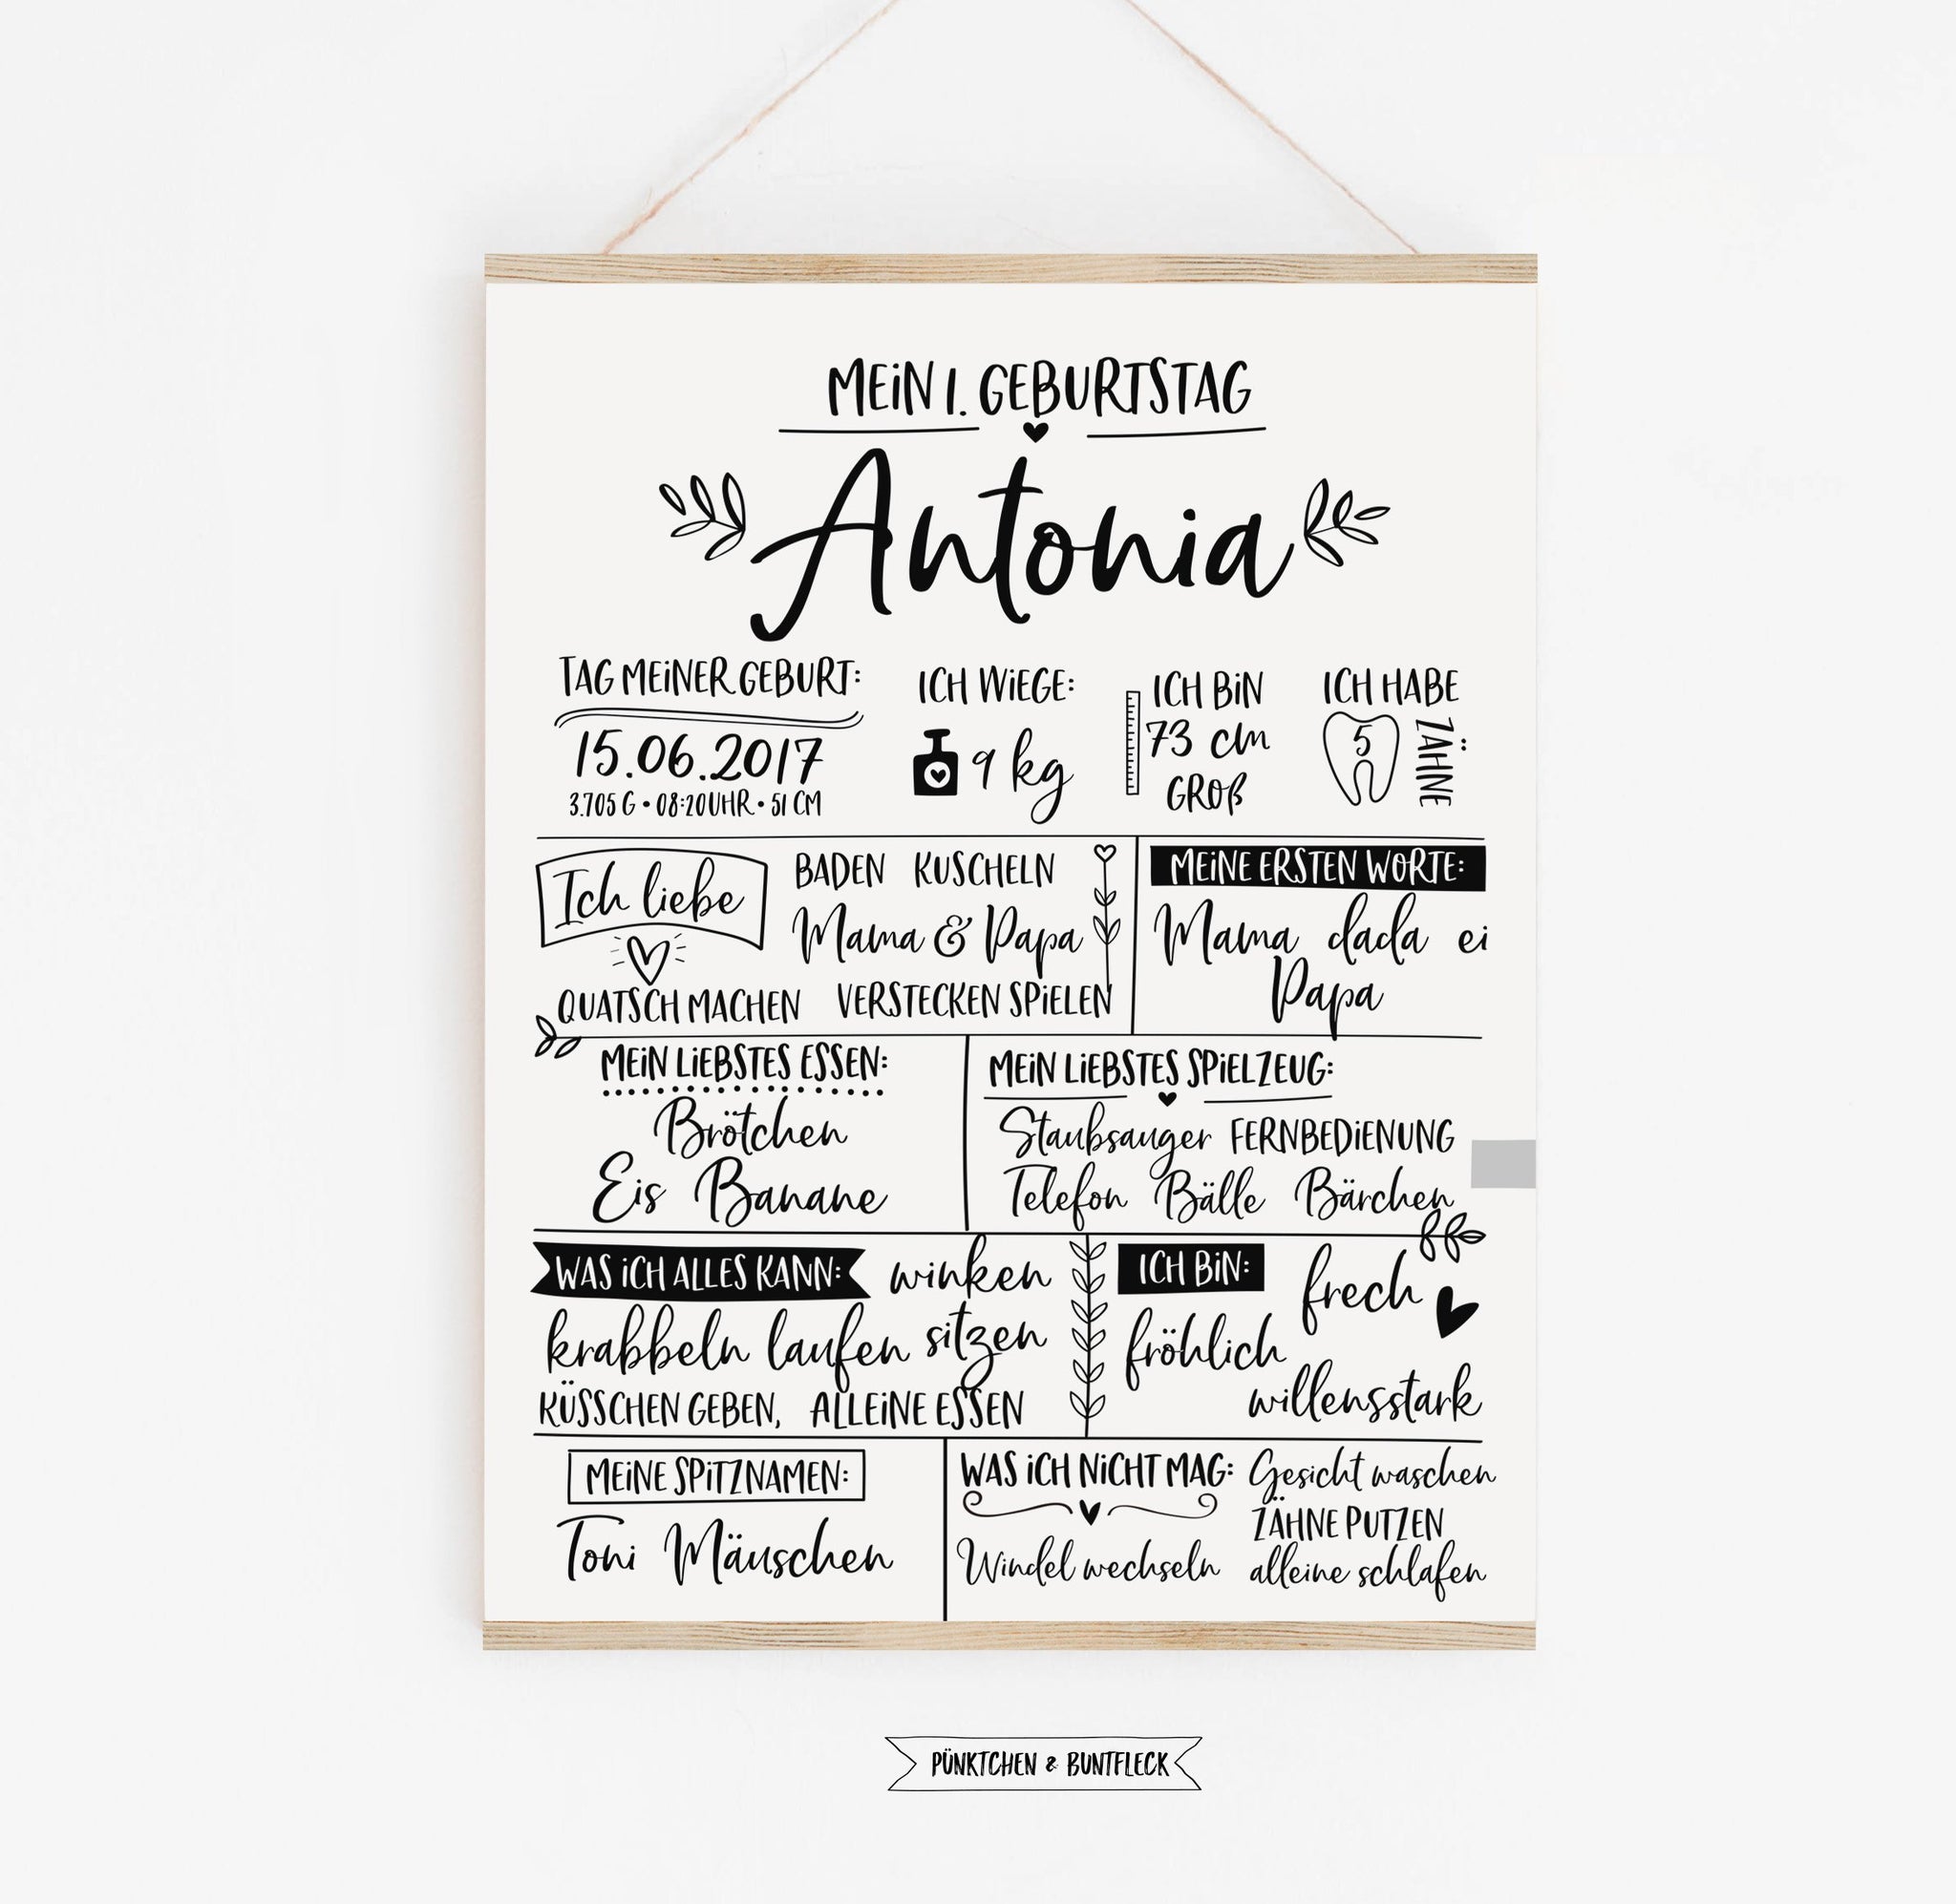 MEiN 1. GEBURTSTAG
Antonia
TAG MEiNER GEBURT:
15.06.2017
3.705 G • 08:20 UHR • 51 CM
ICH WiEGE:
9 kg
ICH BiN
73 cm
GROß
ICH HABE
5
ZÄHNE
Ich liebe
BADEN KUSCHELN
Mama & Papa
QUATSCH MACHEN VERSTECKEN SPiELEN
MEiNE ERSTEN WORTE:
Mama dada ei
Papa
MEiN LiEBSTES ESSEN:
Brötchen
Eis Banane
MEiN LiEBSTES SPiELZEUG:
Staubsauger FERNBEDiENUNG
Telefon Bälle Bärchen
WAS iCH ALLES KANN: winken
krabbeln laufen sitzen
KÜSSCHEN GEBEN, ALLEiNE ESSEN
ICH BiN: frech
fröhlich
willensstark
MEiNE SPiTZNAMEN:
Toni Mäuschen
WAS iCH NiCHT MAG: Gesicht waschen
ZÄHNE PUTZEN
Windel wechseln alleine schlafen
PÜNKTCHEN & BUNTFLECK